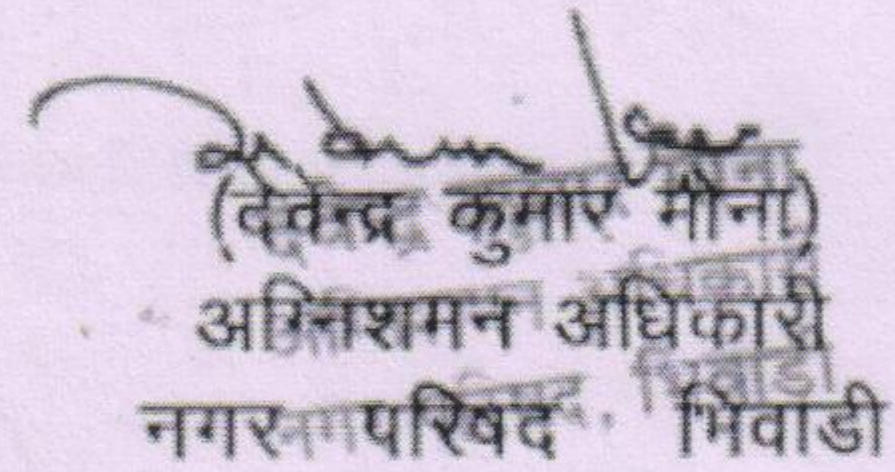 (देवेन्द्र कुमार मीना)
अग्निशमन अधिकारी
नगर परिषद भिवाडी